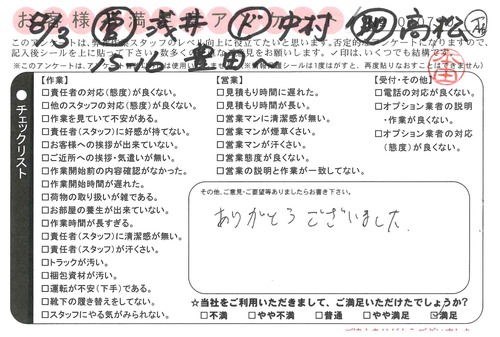 お客様満足度アンケート
8/3 営 浅井 ド 中村 助 高松
15-16 豊田へ
このアンケートは、弊社スタッフのレベル向上に役立てたいと思います。否定的なアンケートになりますので、
記入後シールを上に貼って下さい。数多くのご意見をお待ちしております。✓印は、いくつでも結構です。
【作業】
□責任者の対応(態度)が良くない。
□他のスタッフの対応(態度)が良くない。
□作業を見ていて不安がある。
□責任者(スタッフ)に好感が持てない。
□お客様への挨拶が出来ていない。
□ご近所への挨拶・気遣いが無い。
□作業開始前の内容確認がなかった。
□作業開始時間が遅れた。
□荷物の取り扱いが雑である。
□お部屋の養生が出来ていない。
□作業時間が長すぎる。
□責任者(スタッフ)に清潔感が無い。
□責任者(スタッフ)が汗くさい。
□トラックが汚い。
□梱包資材が汚い。
□運転が不安(下手)である。
□靴下の履き替えをしてない。
□スタッフにやる気がみられない。
【営業】
□見積もり時間に遅れた。
□見積もり時間が長い。
□営業マンに清潔感が無い。
□営業マンが煙草くさい。
□営業マンが汗くさい。
□営業態度が良くない。
□営業の説明と作業が一致してない。
【受付・その他】
□電話の対応が良くない。
□オプション業者の説明
・作業が良くない。
□オプション業者の対応
(態度)が良くない。
チェックリスト
その他、ご意見・ご要望等ありましたらお書き下さい。
ありがとうございました
☆当社をご利用いただきまして、ご満足いただけたでしょうか?
□不満 □やや不満 □普通 □やや満足 ☑満足